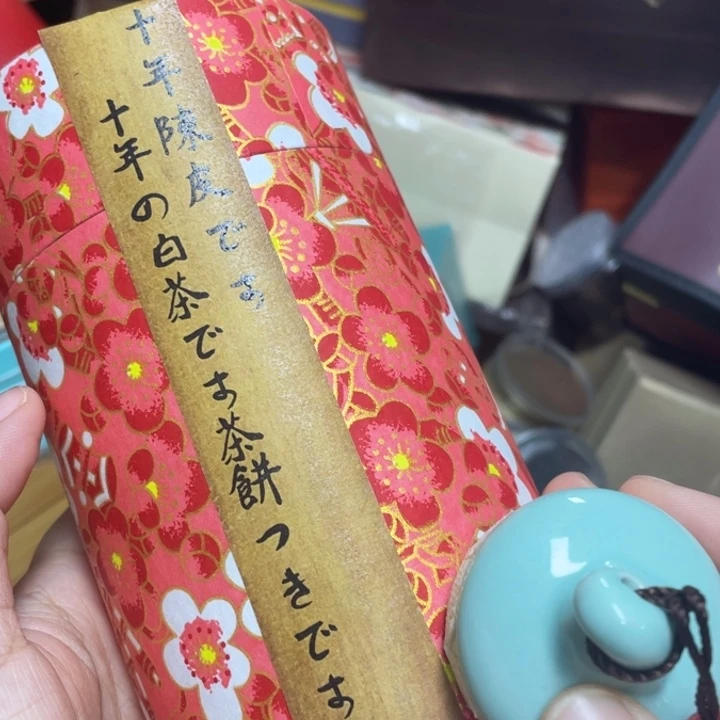 十年陳皮です
十年の白茶です茶餅つきです